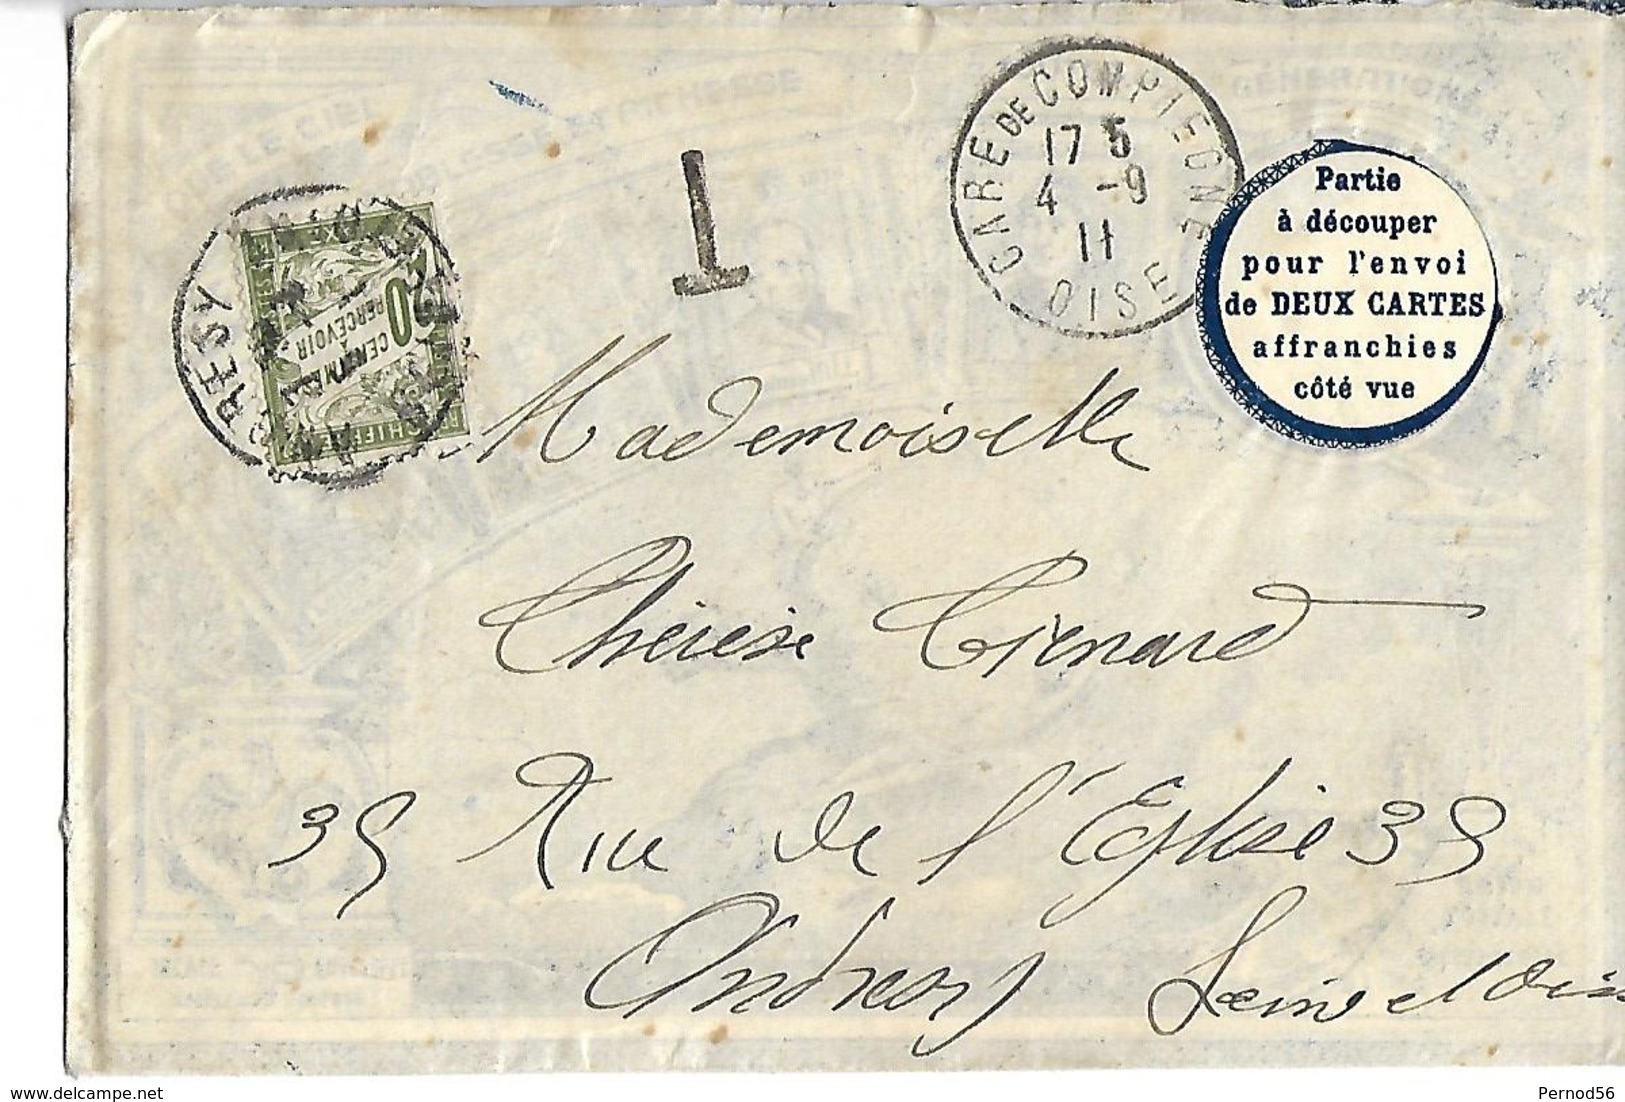 GARE DE COMPIEGNE
17 5
4 -9
11
OISE
T
20
CENTIMES
À
PERCEVOIR
CHIFFRE TAXE
Partie
à découper
pour l'envoi
de DEUX CARTES
affranchies
côté vue
Mademoiselle
Thérèse Tienard
35 Rue de l'Eglise 35
Andresy Seine et Oise
GÉNÉRATION
www.delcampe.net
Pernod56